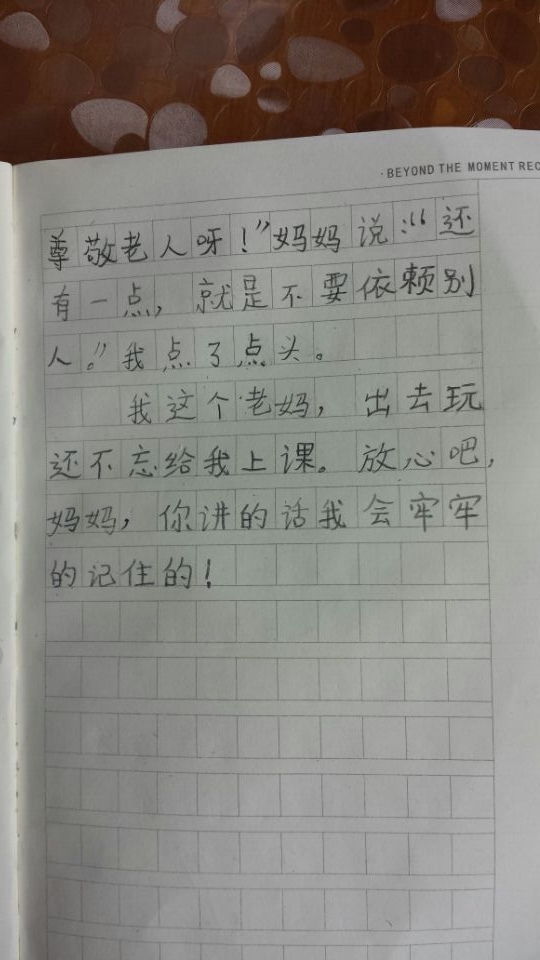 ·BEYOND THE MOMENT REC
尊敬老人呀！”妈妈说：“还
有一点，就是不要依赖别
人。”我点了点头。
我这个老妈，出去玩
还不忘给我上课。放心吧，
妈妈，你讲的话我会牢牢
的记住的！